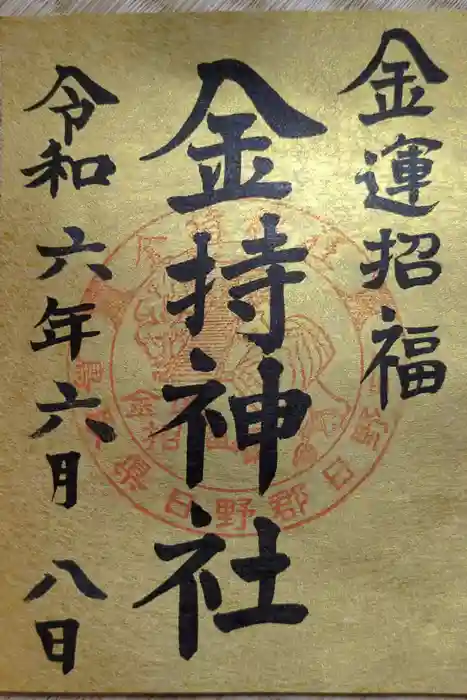 金運招福
金持神社
令和六年六月八日
日野郡